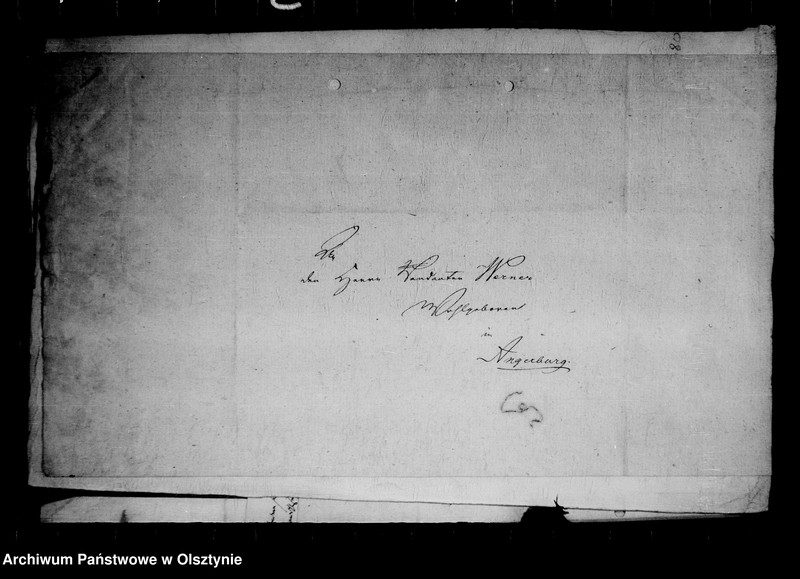 80
An
den Herrn Rendanten Werner
Wohlgeboren
in
Angerburg.
Archiwum Państwowe w Olsztynie